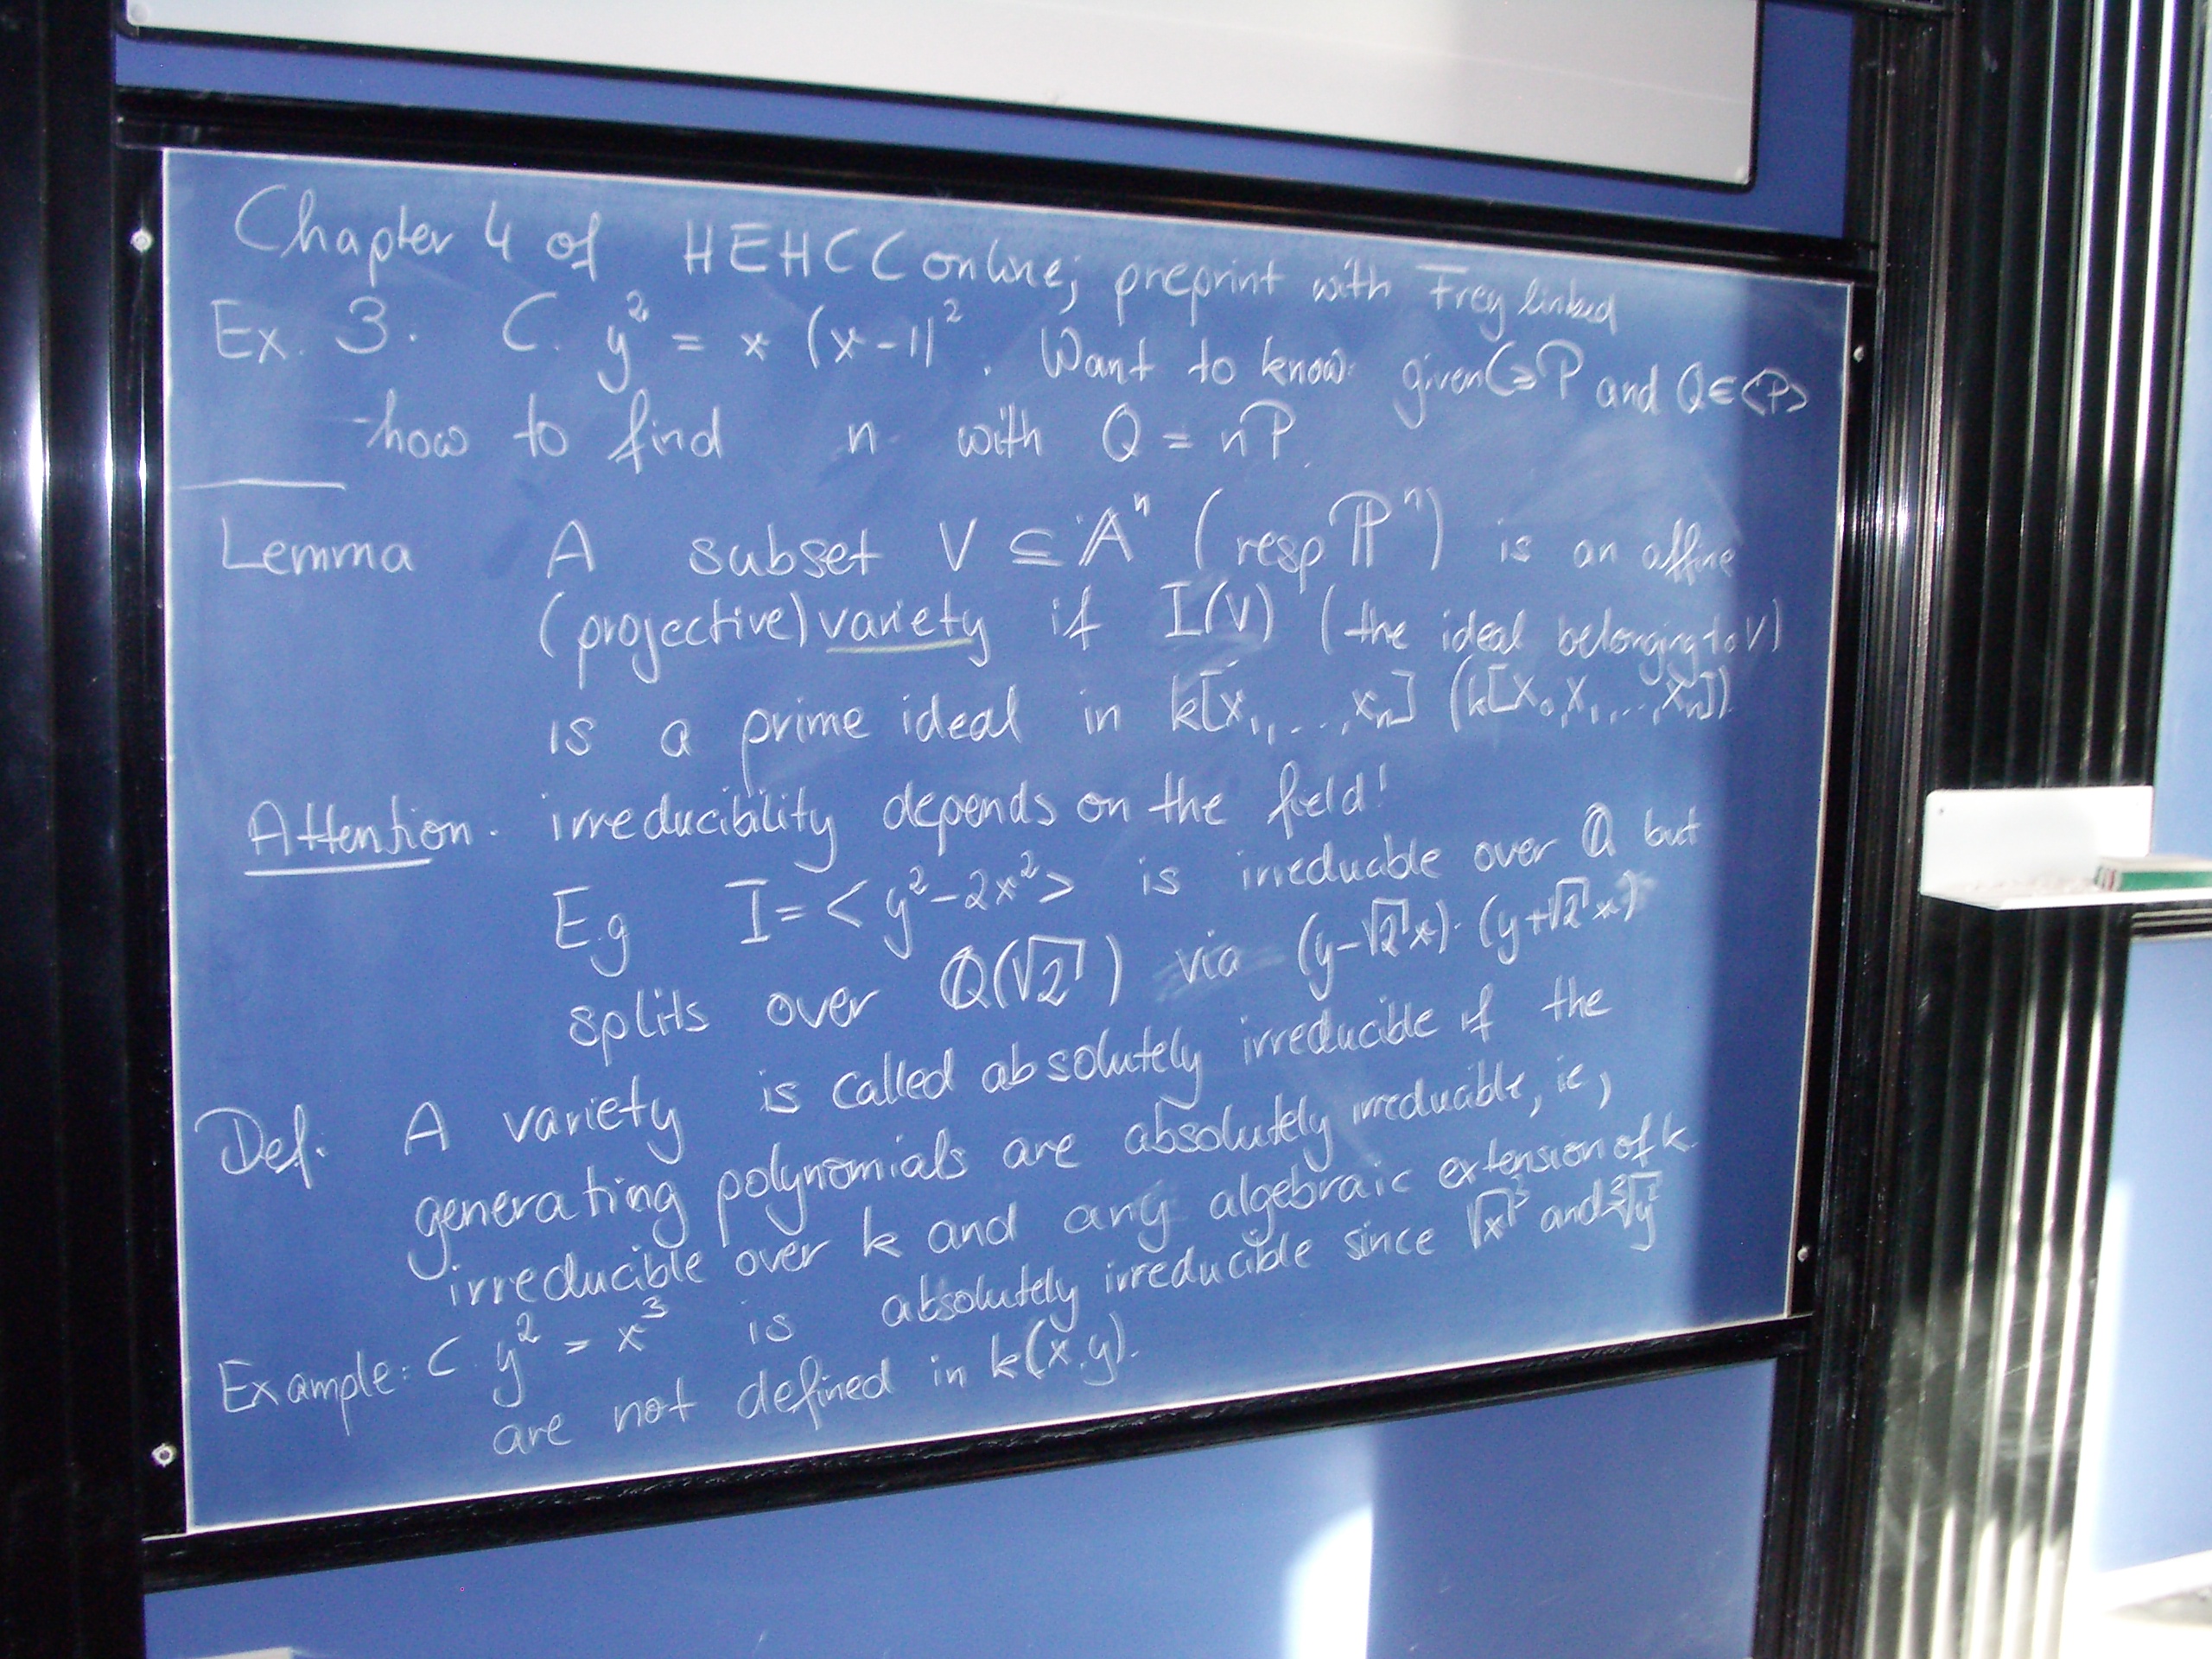 Chapter 4 of HEHCC online; preprint with Frey linked
Ex. 3. C. y² = x (x-1)². Want to know: given C∋P and Q∈<P>
-how to find n with Q = nP.
Lemma A subset V ⊆ 𝔸ⁿ (resp ℙⁿ) is an affine
(projective) variety if I(V) (the ideal belonging to V)
is a prime ideal in k[x₁,...,xₙ] (k[X₀,X₁,...,Xₙ]).
Attention. irreducibility depends on the field!
E.g I = < y²-2x² > is irreducible over ℚ but
splits over ℚ(√2) via (y-√2x)·(y+√2x)
Def. A variety is called absolutely irreducible if the
generating polynomials are absolutely irreducible, ie,
irreducible over k and any algebraic extension of k.
Example: C. y² = x³ is absolutely irreducible since √x³ and ³√y²
are not defined in k(x,y).